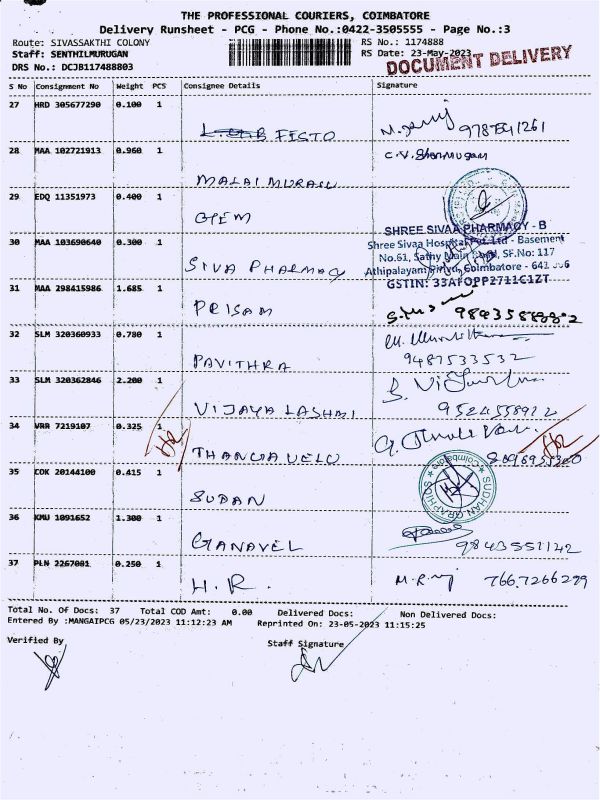 THE PROFESSIONAL COURIERS, COIMBATORE
Delivery Runsheet - PCG - Phone No.:0422-3505555 - Page No.:3
Route: SIVASSAKTHI COLONY RS No.: 1174888
Staff: SENTHILMURUGAN RS Date: 23-May-2023
DRS No.: DCJB117488803 DOCUMENT DELIVERY
S No Consignment No Weight PCS Consignee Details Signature
27 HRD 305677290 0.100 1
FESTO
28 MAA 102721913 0.960 1 C.V. Shanmugam
MALAI MURASU
29 EDQ 11351973 0.400 1
GIEM
SHREE SIVAA PHARMACY - B
30 MAA 103690640 0.300 1 Shree Sivaa Hospital Pvt. Ltd - Basement
SIVA PHARMACY No.61, Sathy Main Road, SF.No: 117
Athipalayam Pirivu, Coimbatore -
31 MAA 298415986 1.685 1 GSTIN: 33AFOPP2711C1ZT
PRISAM
32 SLM 320360933 0.780 1
PAVITHRA 9487533532
33 SLM 320362846 2.200 1
VIJAYA LASHMI
34 VRR 7219107 0.325 1
THANGAVELU
35 COK 20144100 0.415 1 SUDHAN GRAPHICS
Coimbatore
SUDAN
36 KMU 1091652 1.300 1
GANAVEL 9843551142
37 PLN 2267001 0.250 1
H.R. 7667266299
Total No. Of Docs: 37 Total COD Amt: 0.00 Delivered Docs: Non Delivered Docs:
Entered By :MANGAIPCG 05/23/2023 11:12:23 AM Reprinted On: 23-05-2023 11:15:25
Verified By Staff Signature